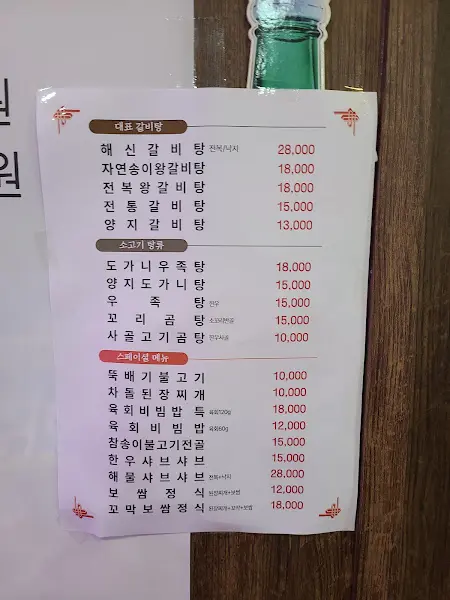 원
원
대표 갈비탕
해신갈비탕 전복/낙지 28,000
자연송이왕갈비탕 18,000
전복왕갈비탕 18,000
전통갈비탕 15,000
양지갈비탕 13,000
소고기 탕류
도가니우족탕 18,000
양지도가니탕 15,000
우족탕 한우 15,000
꼬리곰탕 소꼬리반골 15,000
사골고기곰탕 한우사골 10,000
스페이셜 메뉴
뚝배기불고기 10,000
차돌된장찌개 10,000
육회비빔밥 특 육회120g 18,000
육회비빔밥 육회80g 12,000
참송이불고기전골 15,000
한우샤브샤브 15,000
해물샤브샤브 전복+낙지 28,000
보쌈정식 된장찌개+보쌈 12,000
꼬막보쌈정식 된장찌개+꼬막+보쌈 18,000